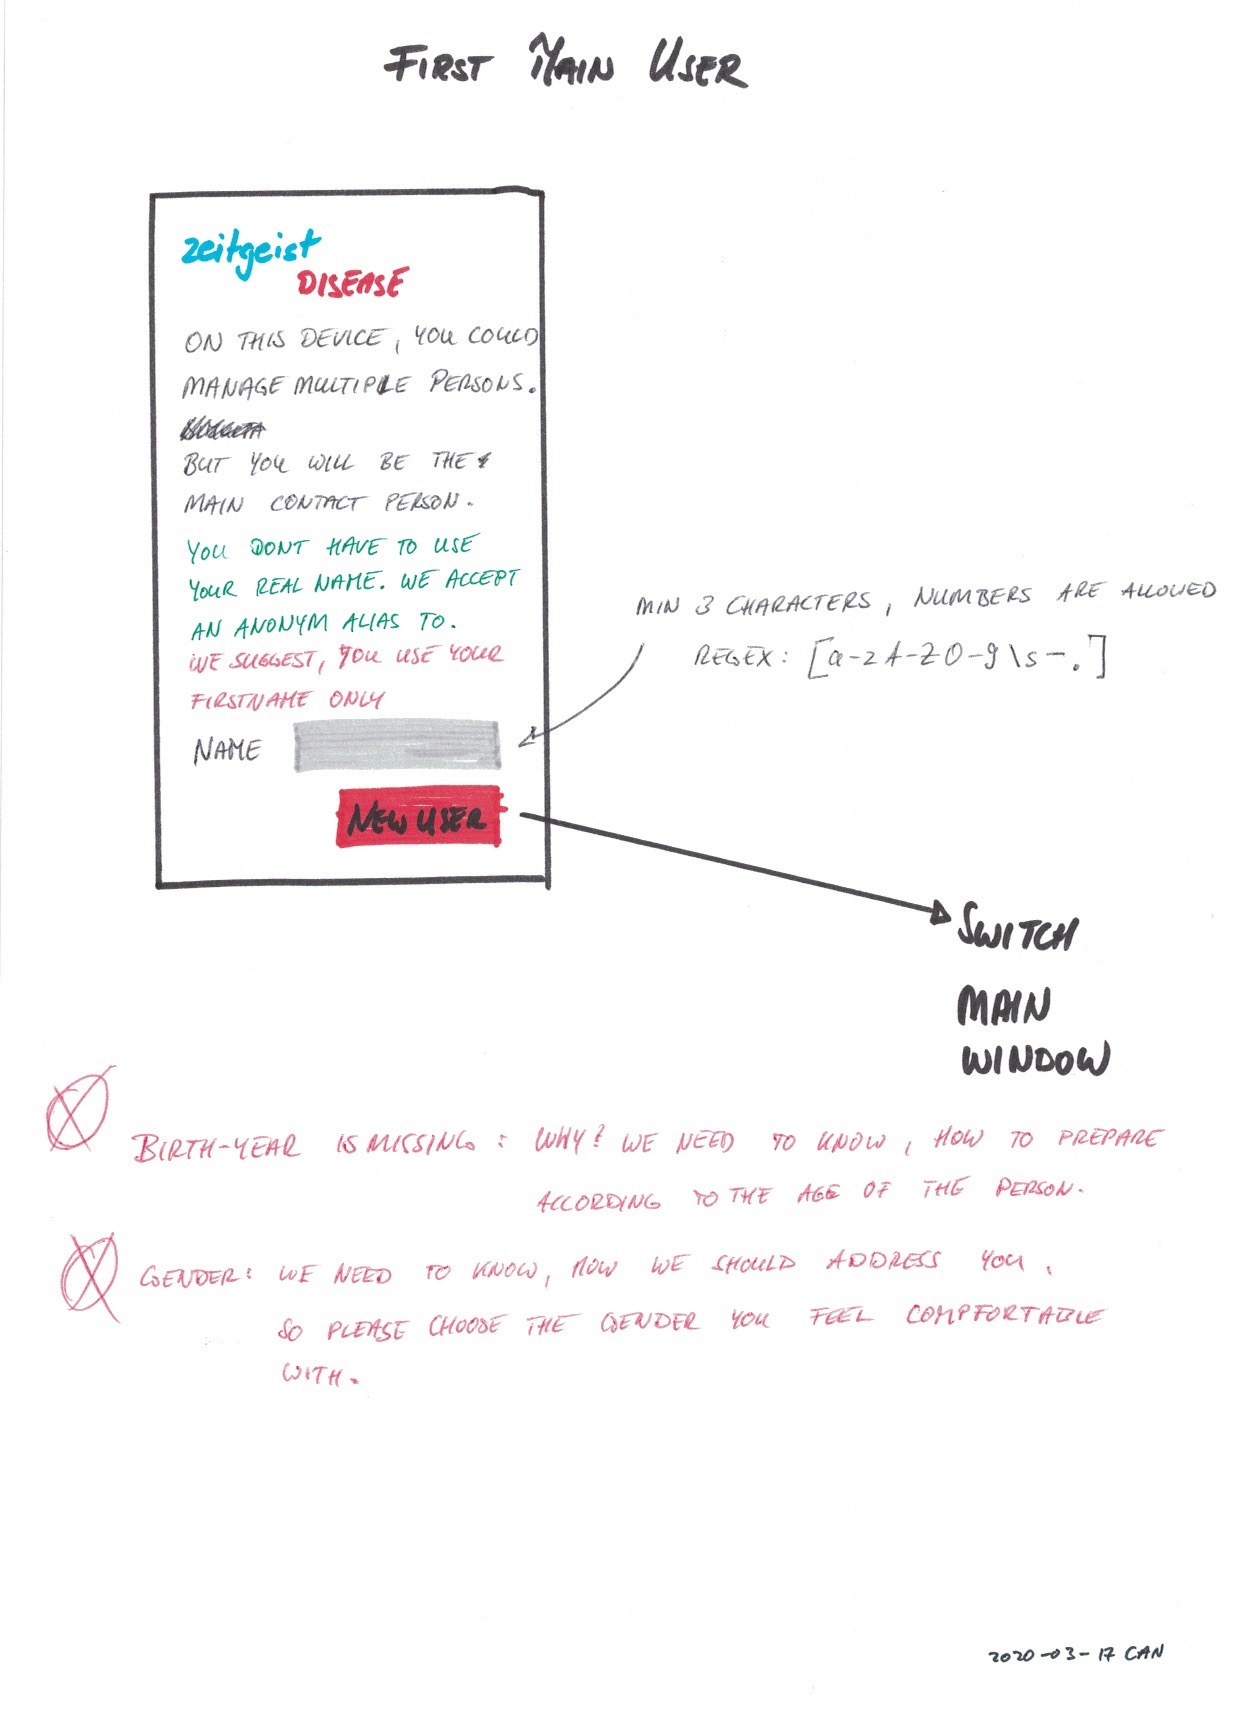 FIRST MAIN USER
zeitgeist
DISEASE
ON THIS DEVICE, YOU COULD
MANAGE MULTIPLE PERSONS.
BUT YOU WILL BE THE
MAIN CONTACT PERSON.
YOU DONT HAVE TO USE
YOUR REAL NAME. WE ACCEPT
AN ANONYM ALIAS TO.
WE SUGGEST, YOU USE YOUR
FIRSTNAME ONLY
NAME
NEW USER
MIN 3 CHARACTERS, NUMBERS ARE ALLOWED
REGEX: [a-zA-Z0-9\s-.]
SWITCH
MAIN
WINDOW
BIRTH-YEAR IS MISSING: WHY? WE NEED TO KNOW, HOW TO PREPARE
ACCORDING TO THE AGE OF THE PERSON.
GENDER: WE NEED TO KNOW, HOW WE SHOULD ADDRESS YOU.
SO PLEASE CHOOSE THE GENDER YOU FEEL COMPFORTABLE
WITH.
2020-03-17 CAN